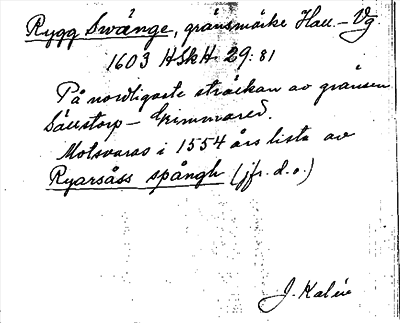 Rygg Swänge, gränsmärke Hall.–Vg.
1603 HSkH 29:81
På nordligaste sträckan av gränsen
Källstorp – Grimmared.
Motsvaras i 1554 års lista av
Ryarsåss spångh (jfr. d. o.)
J. Kalén